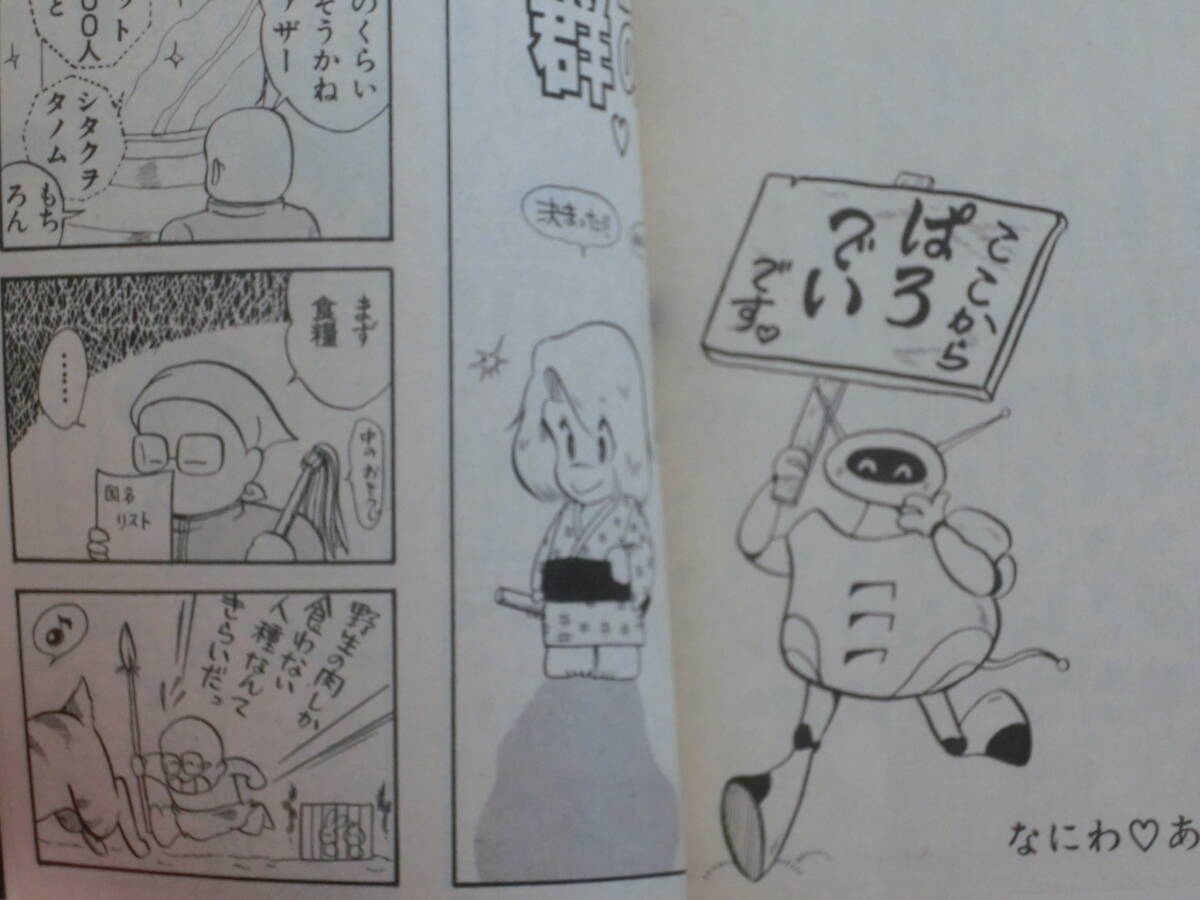 ここから
ぱろ
でい
です♡
なにわ♡あ
群
♡
決まった!!
のくらい
そうかね
ァザー
ット
00人
と
シタクヲ
タノム
もち
ろん
まず
食糧
……
国名
リスト
野生の肉しか
食わない
人種なんて
きらいだっ
♪